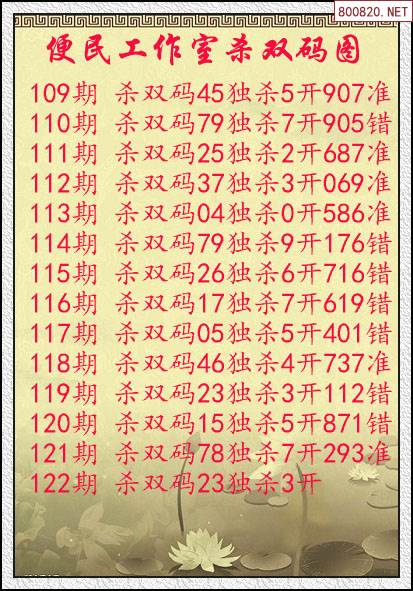 800820.NET
便民工作室杀双码图
109期 杀双码45独杀5开907准
110期 杀双码79独杀7开905错
111期 杀双码25独杀2开687准
112期 杀双码37独杀3开069准
113期 杀双码04独杀0开586准
114期 杀双码79独杀9开176错
115期 杀双码26独杀6开716错
116期 杀双码17独杀7开619错
117期 杀双码05独杀5开401错
118期 杀双码46独杀4开737准
119期 杀双码23独杀3开112错
120期 杀双码15独杀5开871错
121期 杀双码78独杀7开293准
122期 杀双码23独杀3开